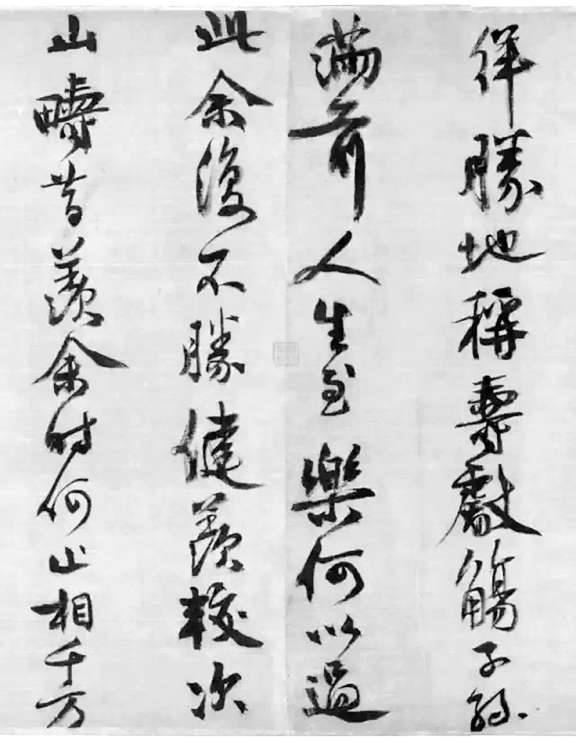 徉勝地稱壽獻觴子孫
滿前人生至樂何以過
此余復不勝健羨較次
山疇昔羨余時何止相千万